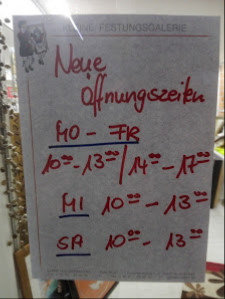 FESTUNGSGALERIE
Neue
Öffnungszeiten
MO - FR
10⁰⁰-13⁰⁰/14⁰⁰-17⁰⁰
MI 10⁰⁰ - 13⁰⁰
SA 10⁰⁰ - 13⁰⁰